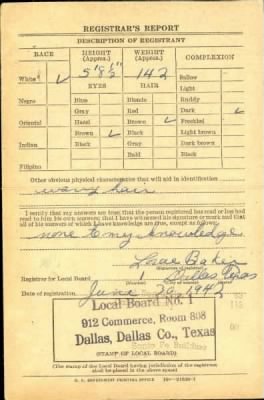 REGISTRAR'S REPORT
DESCRIPTION OF REGISTRANT
RACE HEIGHT (Approx.) WEIGHT (Approx.) COMPLEXION
White ✓ 5'8½" 142 Sallow
EYES HAIR Light
Negro Blue Blonde Ruddy
Gray Red Dark ✓
Oriental Hazel Brown ✓ Freckled
Brown ✓ Black Light brown
Indian Black Gray Dark brown
Bald Black
Filipino
Other obvious physical characteristics that will aid in identification
wavy hair
I certify that my answers are true; that the person registered has read or has had
read to him his own answers; that I have witnessed his signature or mark and that all
of his answers of which I have knowledge are true, except as follows:
none to my knowledge
Baker
Registrar for Local Board 1 Dallas Texas
Date of registration June 30, 1942
Local Board No. 1
912 Commerce, Room 808
Dallas, Dallas Co., Texas
Santa Fe Building
(STAMP OF LOCAL BOARD)
(The stamp of the Local Board having jurisdiction of the registrant
shall be placed in the above space)
U. S. GOVERNMENT PRINTING OFFICE